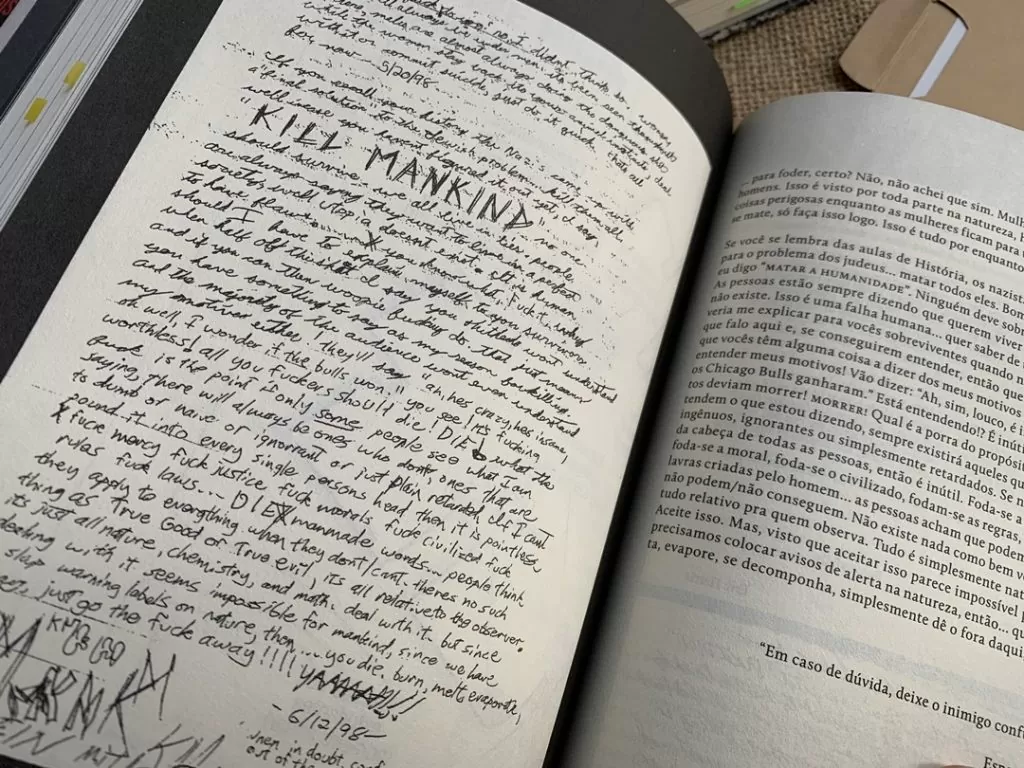 always be under men. its been seen
males are almost always doing the dangerous shit
while the women stay back. its your animal instincts, deal
with that or commit suicide, just do it quick. thats all
for now — 5/20/98
If you recall your history the Nazis came up with
a "final solution" to the Jewish problem. kill them all.
well incase you havent figured it out yet, I say
"KILL MANKIND" no one
should survive. we all live in lies. people
are always saying they want to live in a perfect
society, well utopia doesnt exist. It is human
to have flaws. you know what, Fuck it. why
should I have to explain myself to you survivors
when half of this shit I say you shitheads wont understand
and if you can then woopie fucking do. that just means
you have something to say as my reason for killing.
and the majority of the audience wont even understand
my motives either! they'll say "ah, hes crazy, hes insane,
oh well, I wonder if the bulls won." you see! its fucking
worthless! all you fuckers should die! DIE! what the
fuck is the point if only some people see what I am
saying, there will always be ones who dont, ones that are
to dumb or naive or ignorant or just plain retarded. If I cant
pound it into every single persons head then it is pointless.
fuck mercy fuck justice fuck morals fuck civilized fuck
rules fuck laws... DIE manmade words... people think
they apply to everything when they dont/cant. theres no such
thing as True Good or True evil, its all relative to the observer.
its just all nature, chemistry, and math. deal with it. but since
dealing with it seems impossible for mankind, since we have
slap warning labels on nature, then... you die. burn, melt, evaporate,
just go the fuck away!!!! YAAAAAH!!
- 6/12/98 -
when in doubt, conf
out of the
KILL
... para foder, certo? Não, não achei que sim. Mulh
homens. Isso é visto por toda parte na natureza,
coisas perigosas enquanto as mulheres ficam para
se mate, só faça isso logo. Isso é tudo por enquanto
Se você se lembra das aulas de História, os nazist
para o problema dos judeus... matar todos eles. Bom
eu digo "MATAR A HUMANIDADE". Ninguém deve sobre
As pessoas estão sempre dizendo que querem viver
não existe. Isso é uma falha humana... quer saber de
veria me explicar para vocês sobreviventes quando
que falo aqui e, se conseguirem entender, então
que vocês têm alguma coisa a dizer dos meus motivos
entender meus motivos! Vão dizer: "Ah, sim, louco, é
os Chicago Bulls ganharam." Está entendendo!? É inúti
tos deviam morrer! MORRER! Qual é a porra do propósi
tendem o que estou dizendo, sempre existirá aqueles qu
ingênuos, ignorantes ou simplesmente retardados. Se n
da cabeça de todas as pessoas, então é inútil. Foda-se a
foda-se a moral, foda-se o civilizado, fodam-se as regras,
lavras criadas pelo homem... as pessoas acham que podem
não podem/não conseguem. Não existe nada como bem v
tudo relativo pra quem observa. Tudo é simplesmente nat
Aceite isso. Mas, visto que aceitar isso parece impossível p
precisamos colocar avisos de alerta na natureza, então... qu
ta, evapore, se decomponha, simplesmente dê o fora daqui
"Em caso de dúvida, deixe o inimigo confu